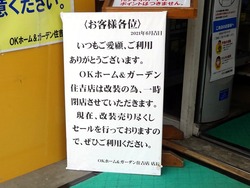 ください。
OKホーム&ガーデン住吉
ポイントはつきません。
〈お客様各位〉
2021年6月吉日
いつもご愛顧、ご利用
ありがとうございます。
OKホーム&ガーデン
住吉店は改装の為、一時
閉店させていただきます。
現在、改装売り尽くし
セールを行っておりますの
で、ぜひご利用ください。
OKホーム&ガーデン住吉店 店長